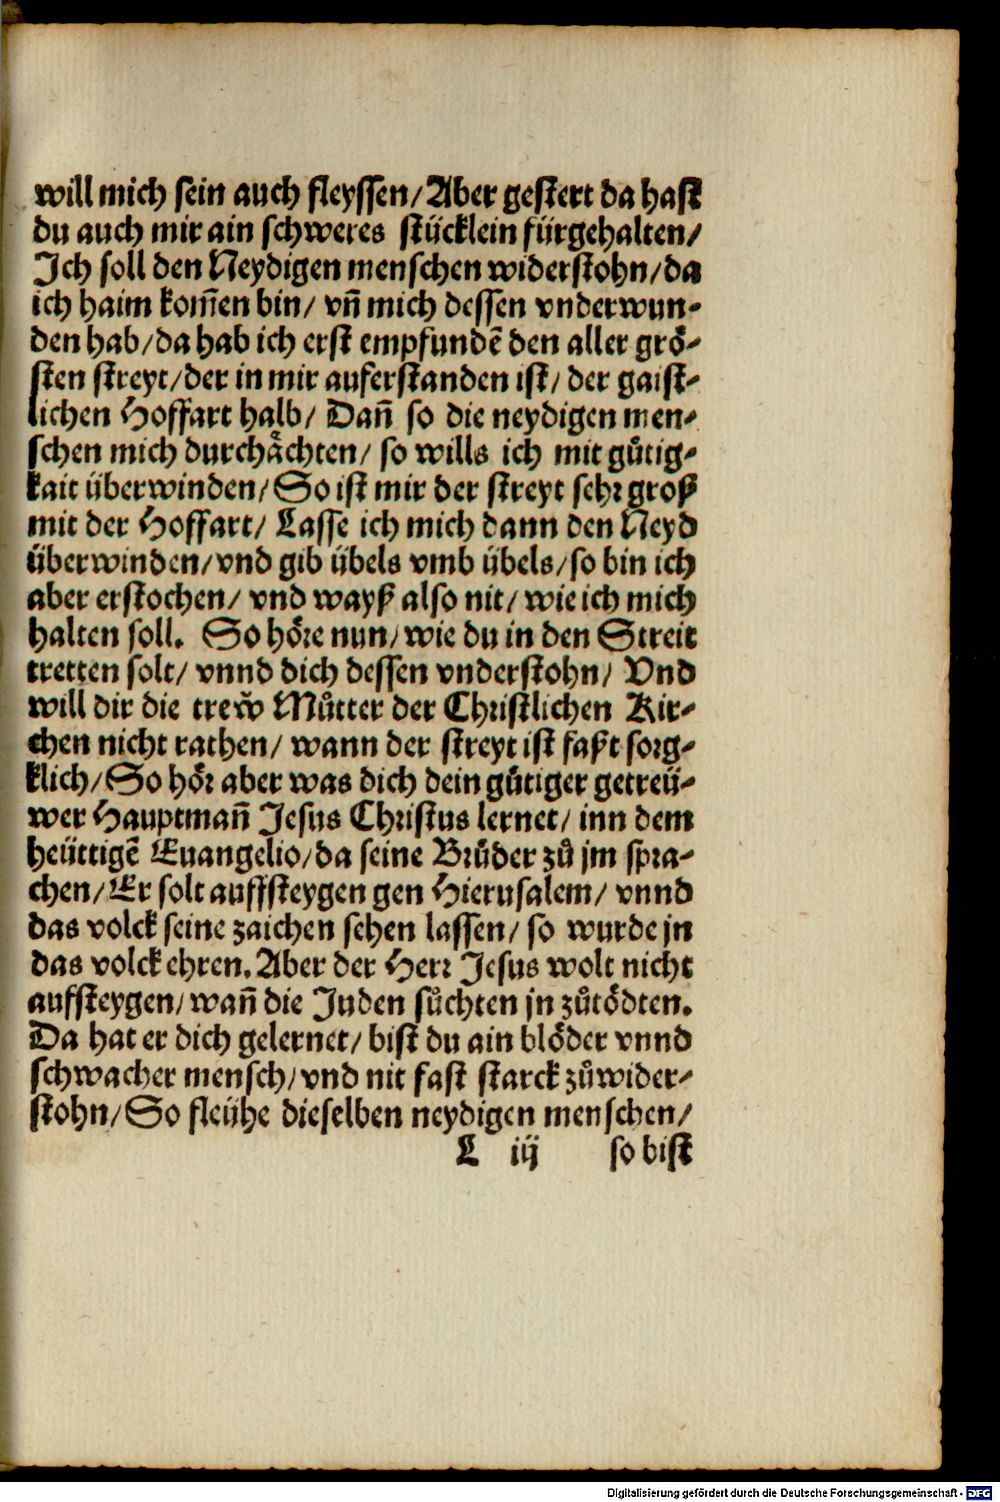 will mich sein auch fleyssen/Aber gestert da hast
du auch mir ain schweres stücklein fürgehalten/
Ich soll den Neydigen menschen widerstohn/da
ich haim kom̄en bin/ vn̄ mich dessen vnderwun-
den hab/da hab ich erst empfundē den aller grö-
sten streyt/der in mir auferstanden ist/ der gaist-
lichen Hoffart halb/ Dan̄ so die neydigen men-
schen mich durchaͤchten/ so wills ich mit guͤtig-
kait überwinden/So ist mir der streyt sehr groß
mit der Hoffart/ Lasse ich mich dann den Neyd
überwinden/vnd gib übels vmb übels/so bin ich
aber erstochen/ vnd wayß also nit/ wie ich mich
halten soll. So höre nun/wie du in den Streit
tretten solt/ vnnd dich dessen vnderstohn/ Vnd
will dir die trew̌ Muͤtter der Christlichen Kir-
chen nicht rathen/ wann der streyt ist faßt sorg-
klich/So hör aber was dich dein guͤtiger getreü-
wer Hauptman̄ Jesus Christus lernet/ inn dem
heüttigē Euangelio/da seine Bruͤder zů jm spra-
chen/Er solt auffsteygen gen Hierusalem/ vnnd
das volck seine zaichen sehen lassen/ so wurde jn
das volck ehren.Aber der Herr Jesus wolt nicht
aufsteygen/wan̄ die Juden sůchten jn zůtödten.
Da hat er dich gelernet/ bist du ain blöder vnnd
schwacher mensch/vnd nit fast starck zůwider-
stohn/So fleühe dieselben neydigen menschen/
L iij so bist
Digitalisierung gefördert durch die Deutsche Forschungsgemeinschaft - DFG